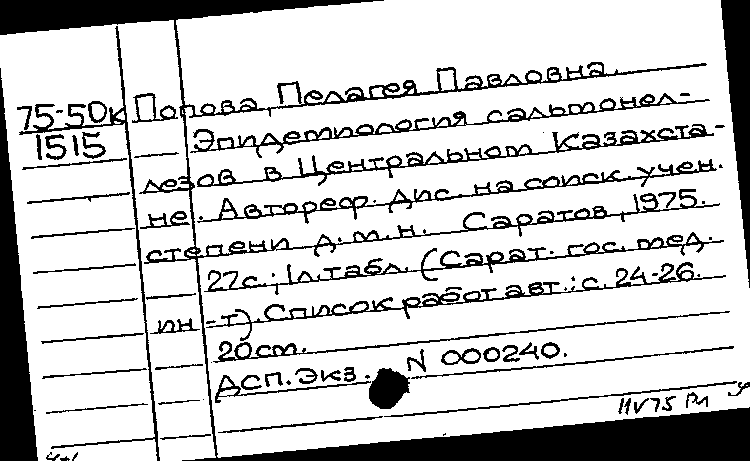 75-50к Попова, Пелагея Павловна.
1515 Эпидемиология сальмонел-
лезов в Центральном Казахста-
не. Автореф. дис. на соиск. учен.
степени д.м.н. Саратов, 1975.
27с.; 1л.табл. (Сарат. гос. мед.
ин-т). Список работ авт.: с. 24-26.
20см.
ДСП. Экз. N 000240.